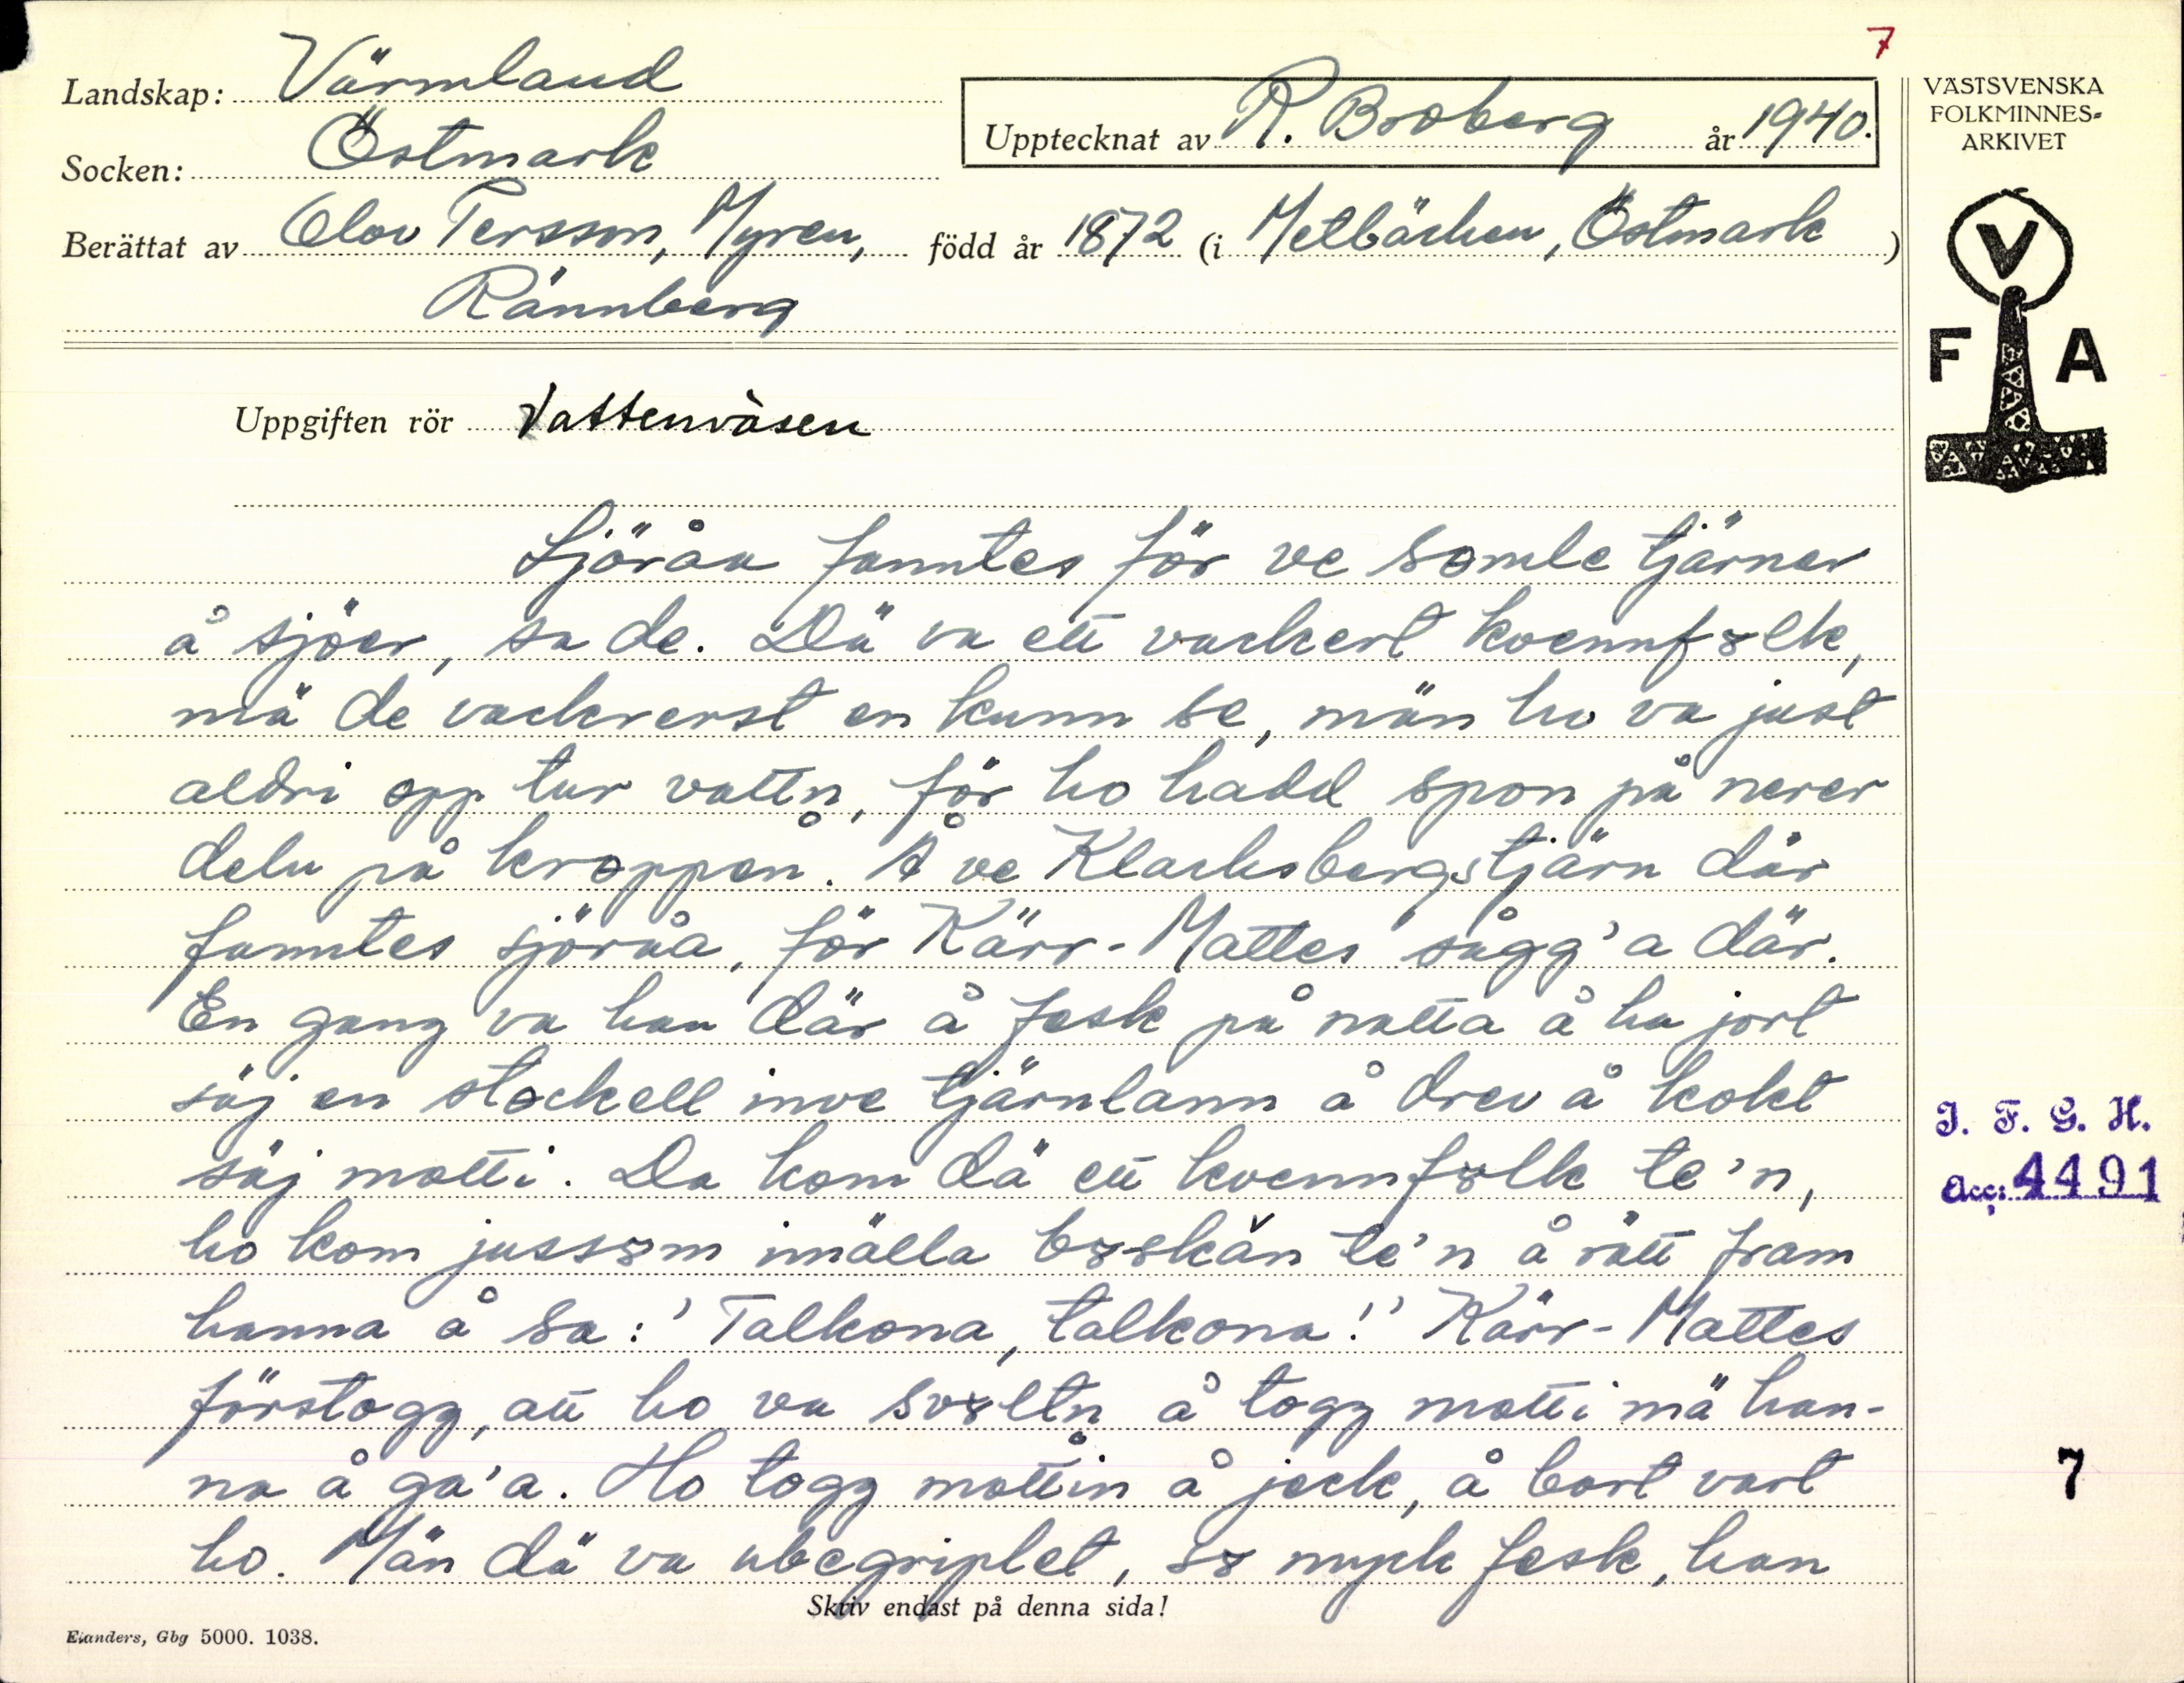 7
Landskap: Värmland
Socken: Östmark
Upptecknat av R. Broberg år 1940.
Berättat av Olov Persson, Myren, född år 1872 (i Metbäcken, Östmark)
Rännberg
VÄSTSVENSKA
FOLKMINNES-
ARKIVET
V
F A
Uppgiften rör Vattenväsen
Sjöråa fanntes för ve somle tjärner
å sjöer, sa de. Dä va ett vackert kvennfɤlk,
mä de vackrerst en kunn se, män ho va just
aldri opp tur vattn, för ho hadd spon på nerer
deln på kroppen. Å ve Klacksbergstjärn där
fanntes sjöråa, för Kärr-Mattes sågg'a där.
En gang va han där å fesk på natta å ha jort
säj en stockell inve tjärnlann å drev å kokt
säj motti. Da kom dä ett kvennfɤlk te'n,
ho kom jussɤm imälla bɤskăn te'n å rätt fram
hanna å sa: 'Talkona, talkona!' Kärr-Mattes
förstogg, att ho va svɤltn å togg motti mä han-
na å ga'a. Ho togg mottin å jeck, å bort vart
ho. Män dä va ubegriplet, sɤ myck fesk, han
I. F. G. H.
Acc: 4491
7
Skriv endast på denna sida!
Elanders, Gbg 5000. 1038.